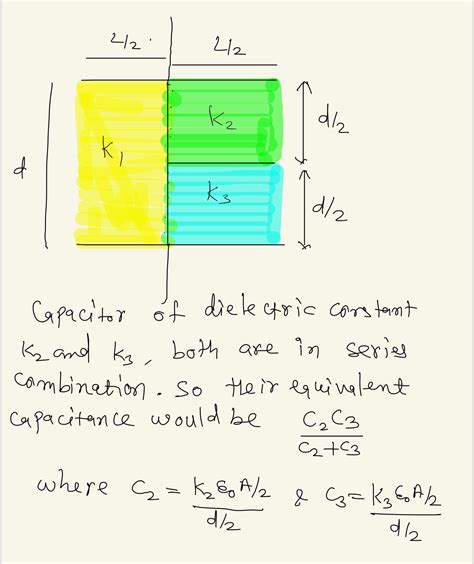 L/2 L/2
k₁
k₂
d/2
d
k₃
d/2
Capacitor of dielectric constant
k₂ and k₃, both are in series
combination. So their equivalent
capacitance would be C₂C₃/(C₂+C₃)
where C₂ = (k₂ε₀A/2)/(d/2) & C₃ = (k₃ε₀A/2)/(d/2)